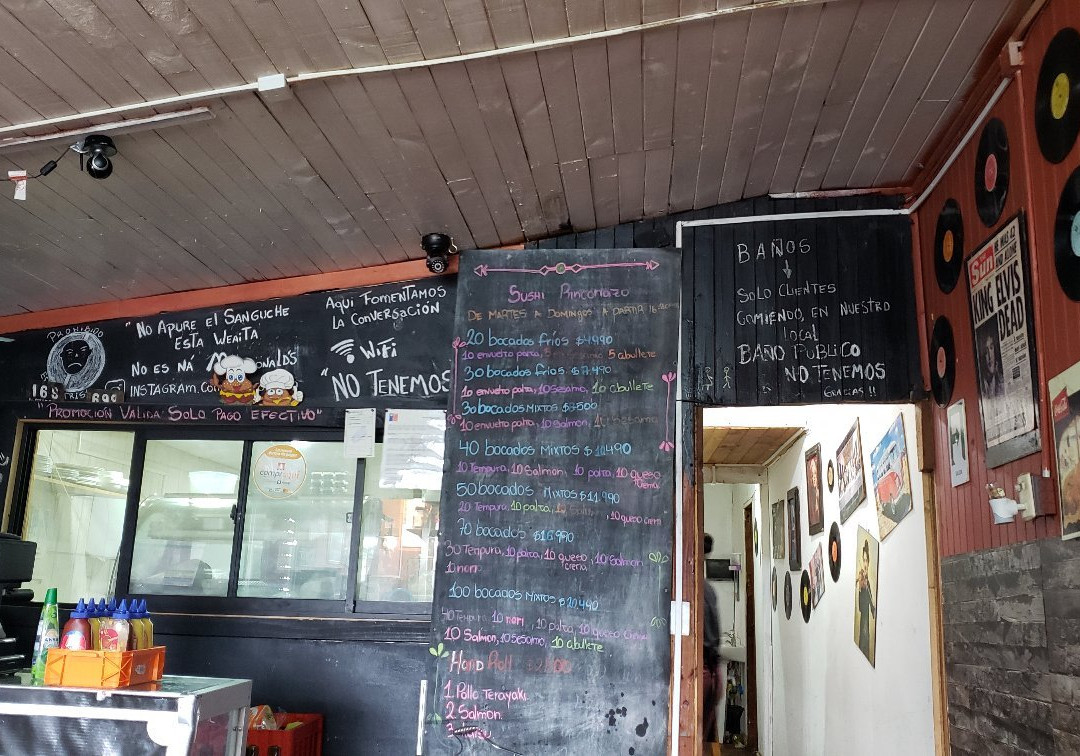 PROHIBIDO
"No APURE El SANGUCHE
ESTA WEAITA
No ES NÁ
INSTAGRAM.Co
"PROMOCIÓN VALIDA SOLO PAGO EFECTIVO"
AQUI FOMENTAMOS
LA CONVERSACIÓN
WiFi
"NO TENEMOS
SUSHI RINCONAZO
DE MARTES A DOMINGOS A PARTIR
20 bocados fríos $4.990
10 envuelto palta, 5 5 cibullete
30 bocados fríos $7.490
10 envuelto palta, 10 sesamo, 10 cibullete
30 bocados MIXTOS $7.500
10 envuelto palta, 10 Salmon,
40 bocados MIXTOS $10.490
10 Tempura, 10 Salmon, 10 palta, 10 queso
crema
50 bocados MIXTOS $11.990
20 Tempura, 10 palta, 10 queso crema
70 bocados $16.990
30 Tempura, 10 palta, 10 queso
crema, 10 Salmon
10 nori
100 bocados MIXTOS $20.490
40 Tempura, 10 nori, 10 palta, 10 queso crema
10 Salmon, 10 Sesamo, 10 cibullete
HAND Roll
1 Pollo Terayaki
2 Salmon
BAÑOS
SOLO CLIENTES
COMIENDO, EN NUESTRO
local
BAÑO PUBLICO
NO TENEMOS
GRACIAS!!
Sun
KING ELVIS
DEAD